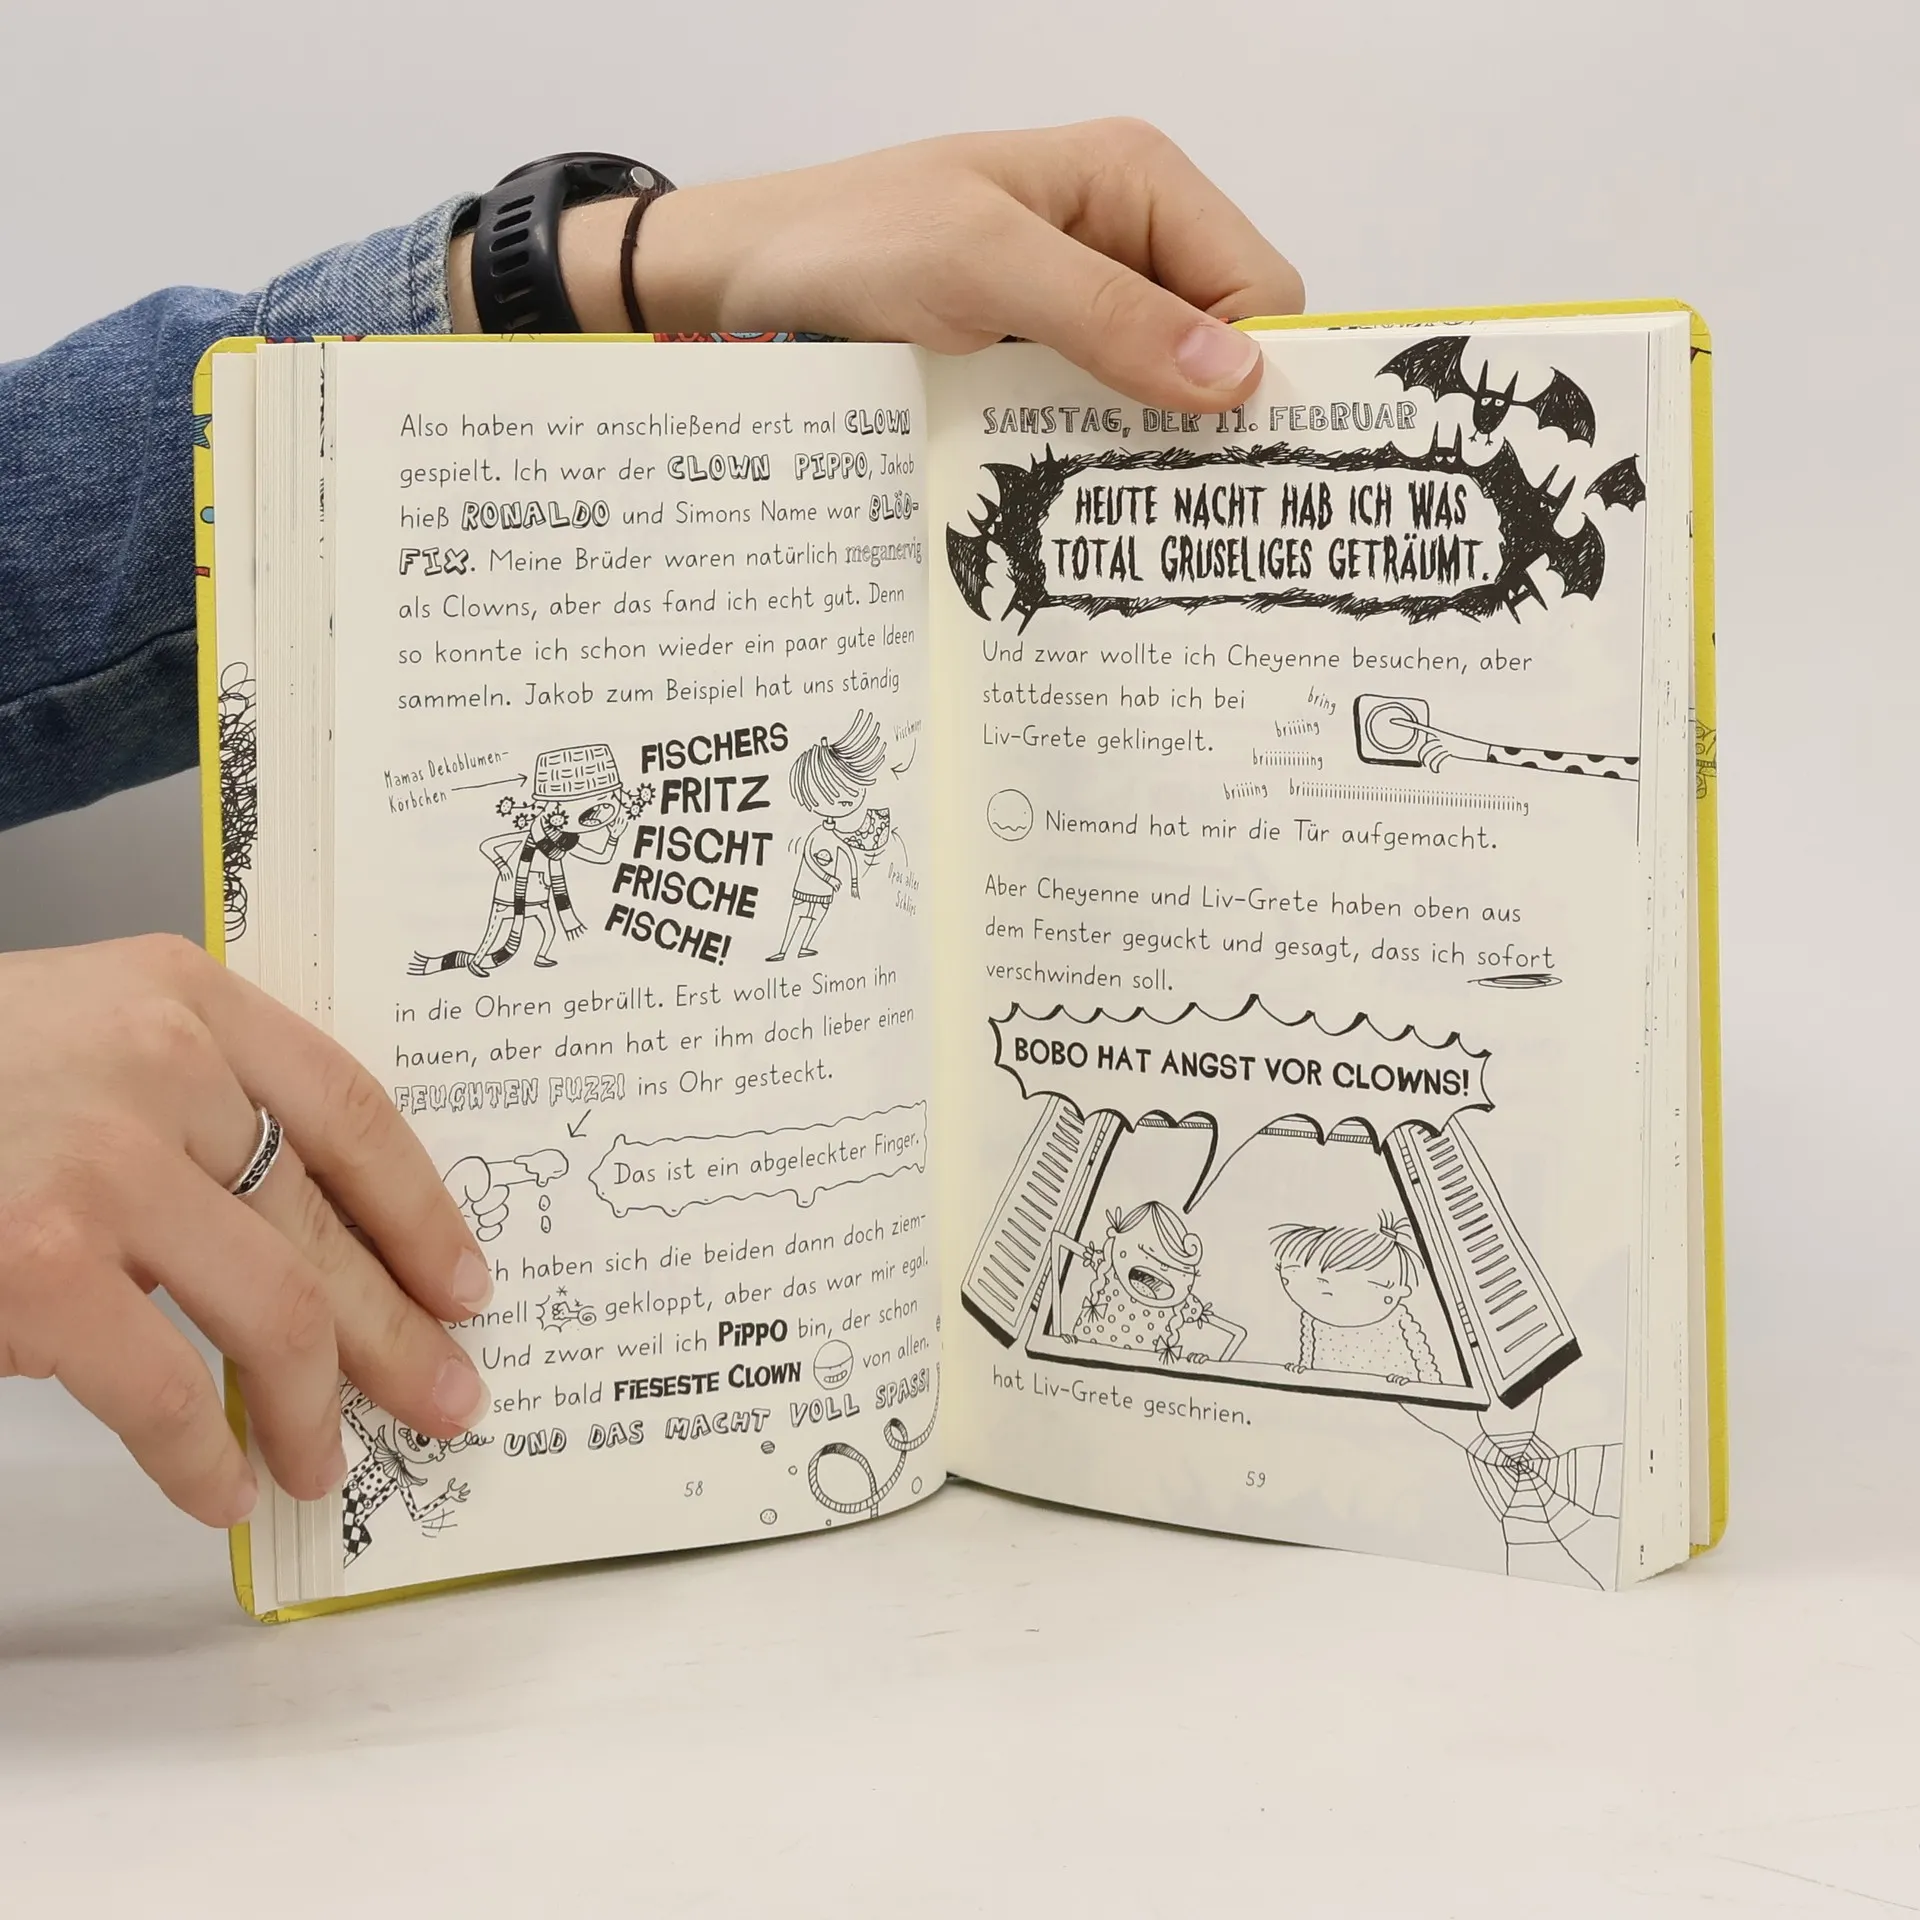 Also haben wir anschließend erst mal CLOWN
gespielt. Ich war der CLOWN PIPPO, Jakob
hieß RONALDO und Simons Name war BLÖD-
FIX. Meine Brüder waren natürlich meganervig
als Clowns, aber das fand ich echt gut. Denn
so konnte ich schon wieder ein paar gute Ideen
sammeln. Jakob zum Beispiel hat uns ständig
Mamas Dekoblumen-
Körbchen
FISCHERS
FRITZ
FISCHT
FRISCHE
FISCHE!
Wischmopp
Opas alter
Schlips
in die Ohren gebrüllt. Erst wollte Simon ihn
hauen, aber dann hat er ihm doch lieber einen
FEUCHTEN FUZZI ins Ohr gesteckt.
Das ist ein abgeleckter Finger.
h haben sich die beiden dann doch ziem-
schnell gekloppt, aber das war mir egal.
Und zwar weil ich PiPPO bin, der schon
sehr bald FiESESTE CLOWN von allen.
UND DAS MACHT VOLL SPASS!
58
SAMSTAG, DER 11. FEBRUAR
HEUTE NACHT HAB ICH WAS
TOTAL GRUSELIGES GETRÄUMT.
Und zwar wollte ich Cheyenne besuchen, aber
stattdessen hab ich bei
Liv-Grete geklingelt.
bring
briiiing
briiiiiiiiiing
briiiing briiiiiiiiiiiiiiiiiiiiiiiiiiiiiiiiiiiiiing
Niemand hat mir die Tür aufgemacht.
Aber Cheyenne und Liv-Grete haben oben aus
dem Fenster geguckt und gesagt, dass ich sofort
verschwinden soll.
BOBO HAT ANGST VOR CLOWNS!
hat Liv-Grete geschrien.
59